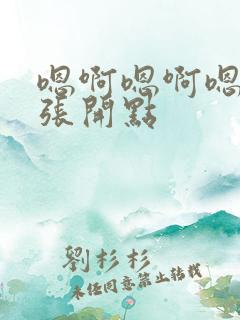 嗯啊嗯啊嗯
張開點
劉杉杉
未經同意禁止轉載